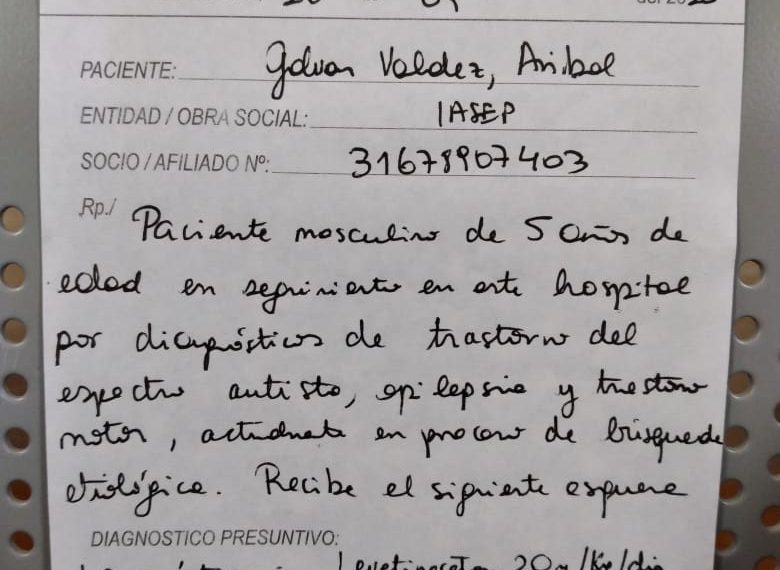 PACIENTE: Galvan Valdez, Anibal
ENTIDAD / OBRA SOCIAL: IASEP
SOCIO / AFILIADO Nº: 31678907403
Rp./ Paciente masculino de 5 años de
edad en seguimiento en este hospital
por diagnósticos de trastorno del
espectro autista, epilepsia y trastorno
motor, actualmente en proceso de búsqueda
etiológica. Recibe el siguiente esquema
DIAGNOSTICO PRESUNTIVO:
Levetiracetam 20m/Kg/dia